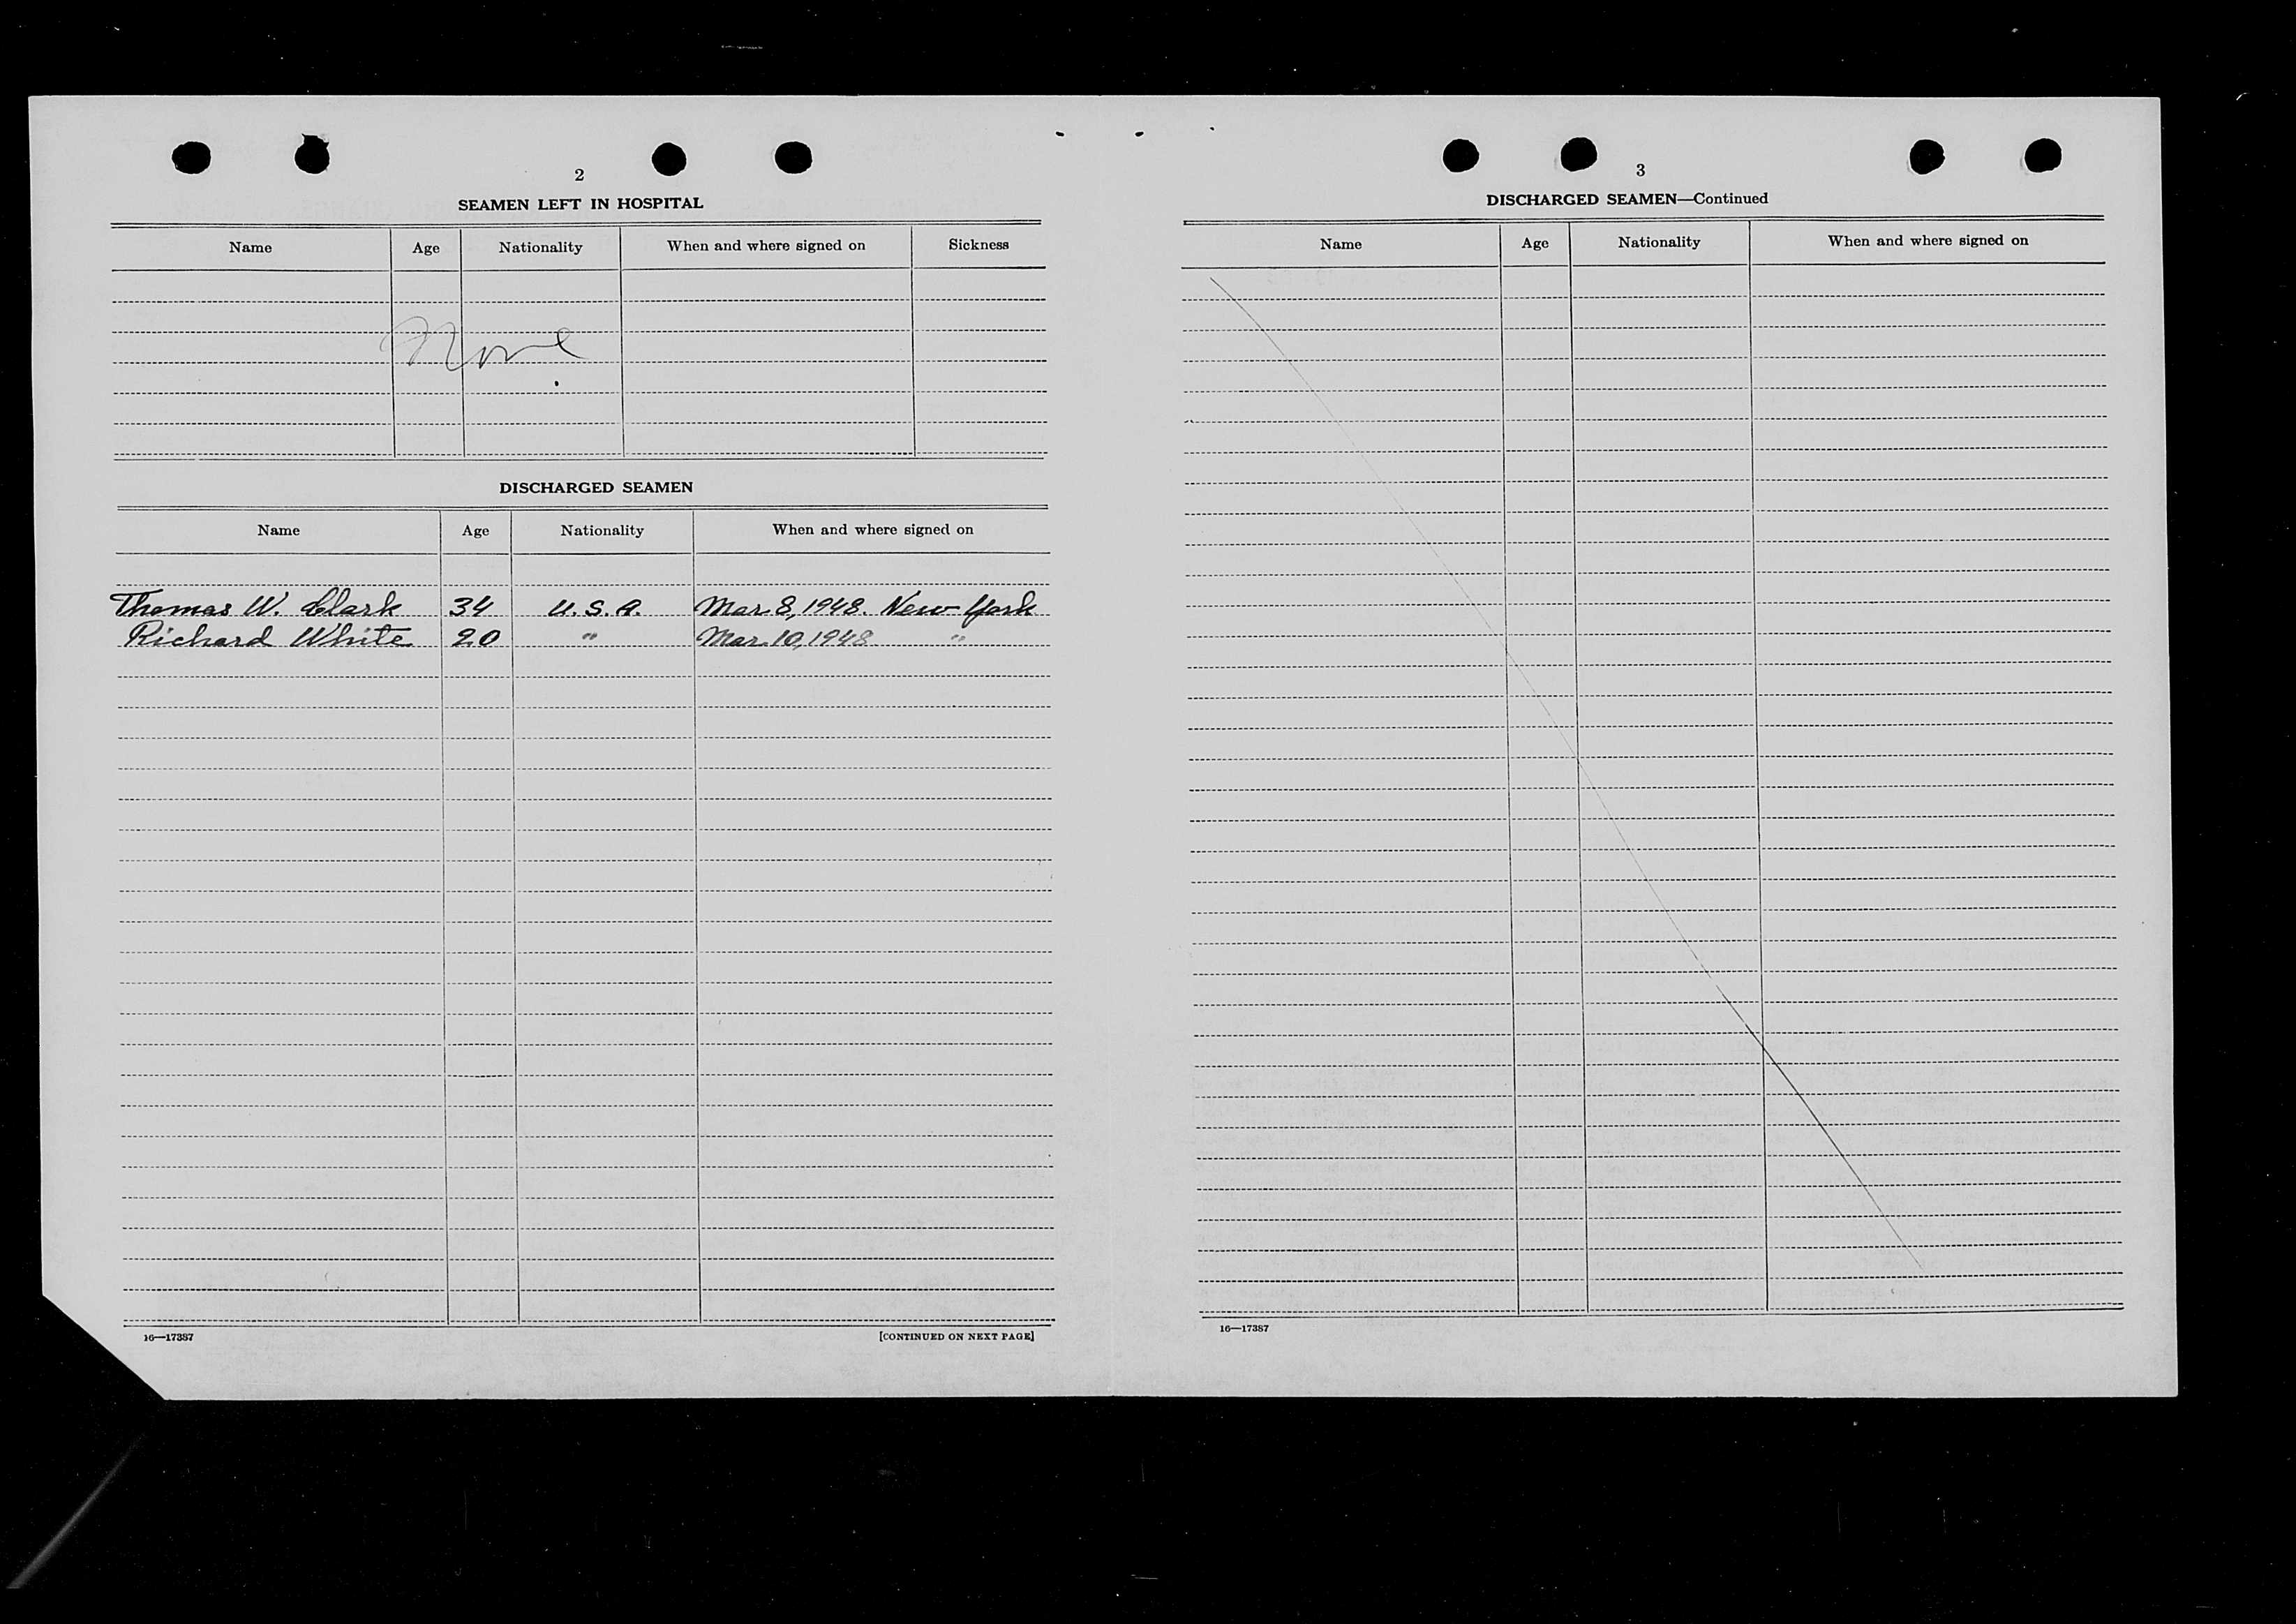 2
SEAMEN LEFT IN HOSPITAL
Name Age Nationality When and where signed on Sickness
None
DISCHARGED SEAMEN
Name Age Nationality When and where signed on
Thomas W. Clark 34 U.S.A. Mar. 8, 1948. New York
Richard White 20 " Mar. 10, 1948 "
16—17387 [CONTINUED ON NEXT PAGE]
3
DISCHARGED SEAMEN—Continued
Name Age Nationality When and where signed on
16—17387